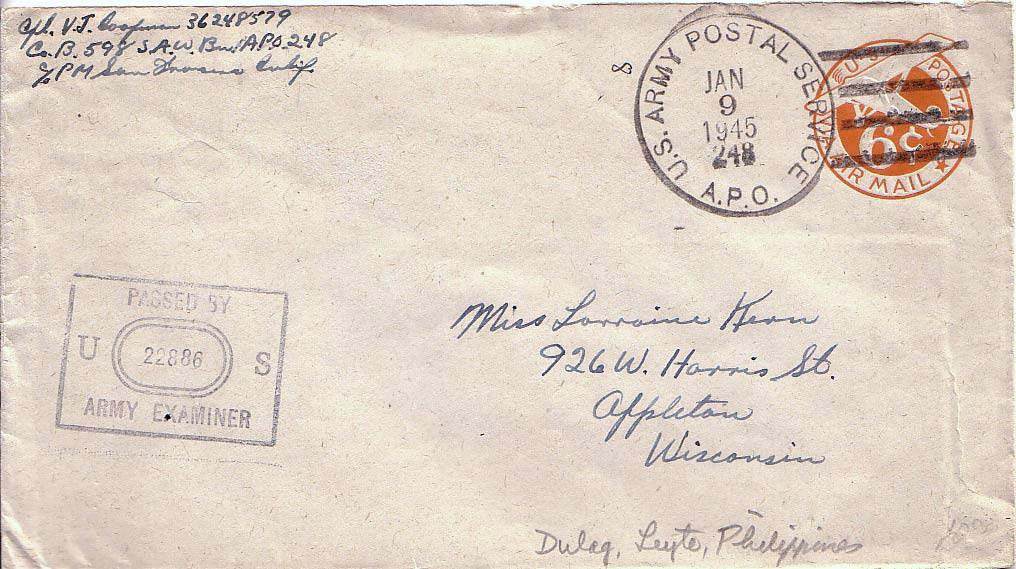 Cpl. V.J. Coopman 36248579
Co. B. 598 S.A.W. Bn. APO 248
c/o PM San Francisco Calif.
8
U.S. ARMY POSTAL SERVICE
JAN
9
1945
248
A.P.O.
U.S. POSTAGE
6¢
VIA AIR MAIL
PASSED BY
U 22886 S
ARMY EXAMINER
Miss Lorraine Kern
926 W. Harris St.
Appleton
Wisconsin
Dulag, Leyte, Philippines